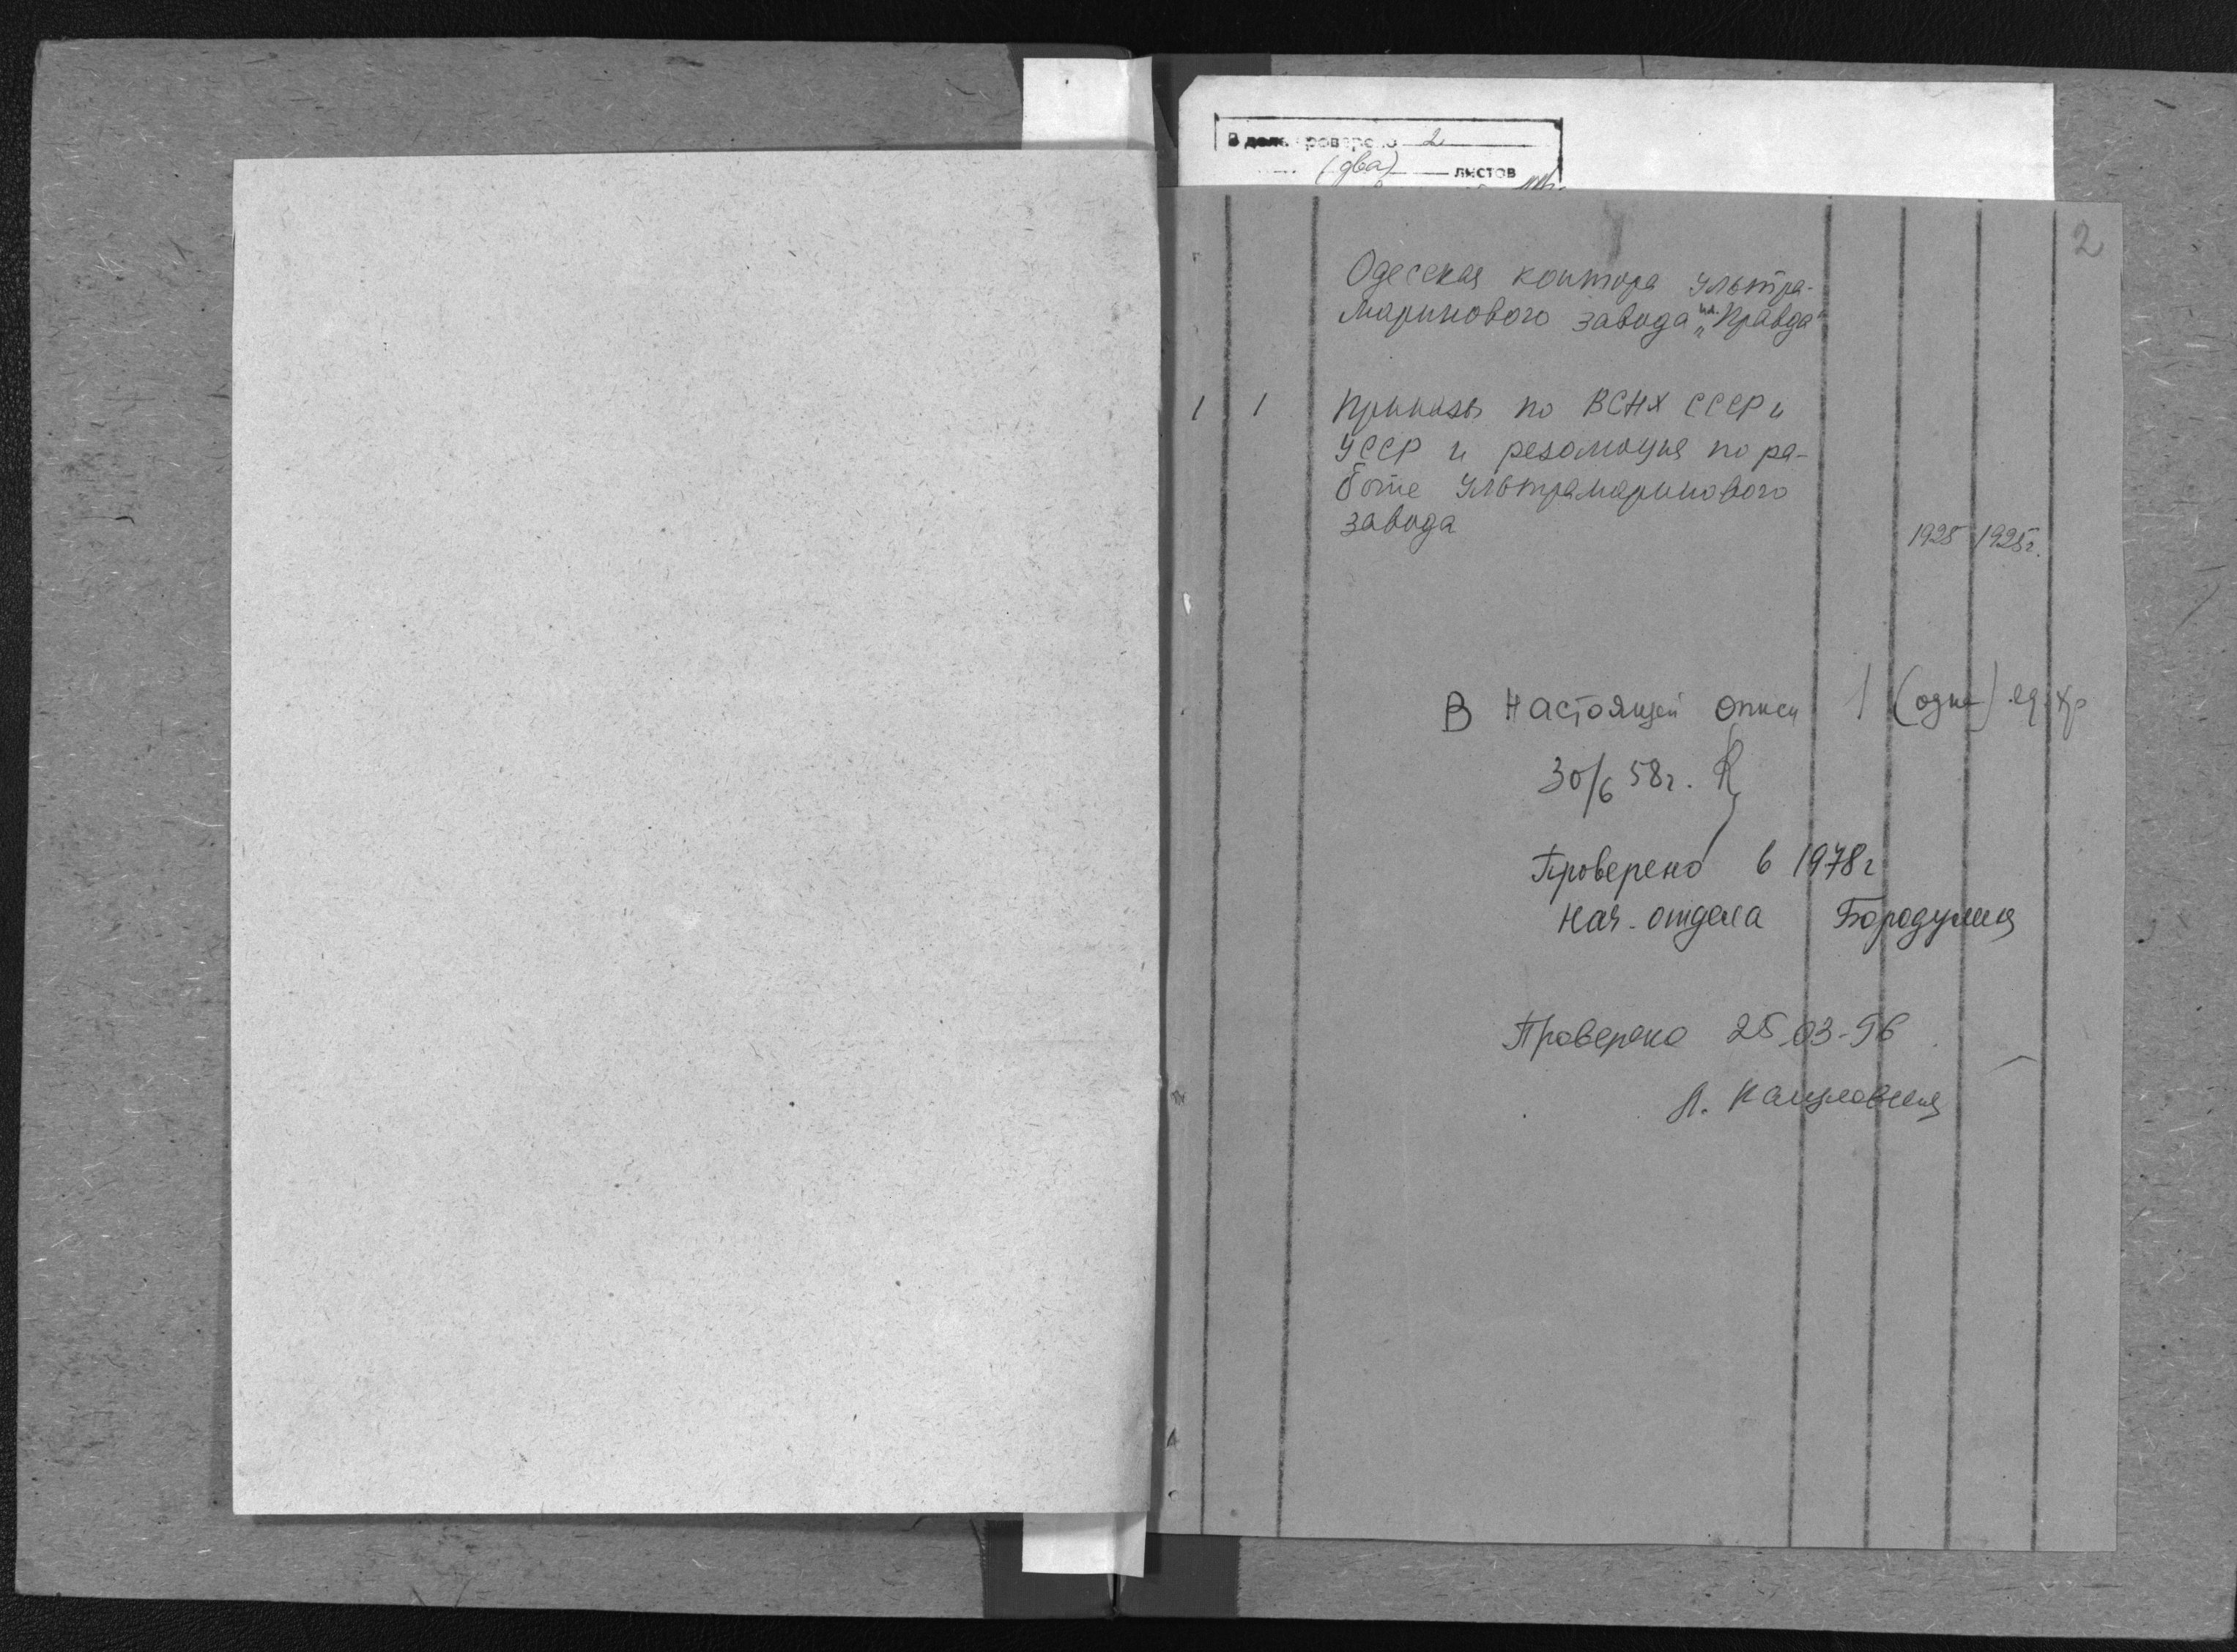 В деле проверено 2
(два) листов
2
Одесская контора Ультра-
маринового завода им. „Правда"
1 1 Приказы по ВСНХ СССР и
УССР и резолюция по ра-
боте Ультрамаринового
завода
1925 1925г.
В настоящей описи 1 (одна) ед. хр
30/6 58г.
Проверено в 1978г
Нач. отдела Бородулина
Проверено 25.03-96